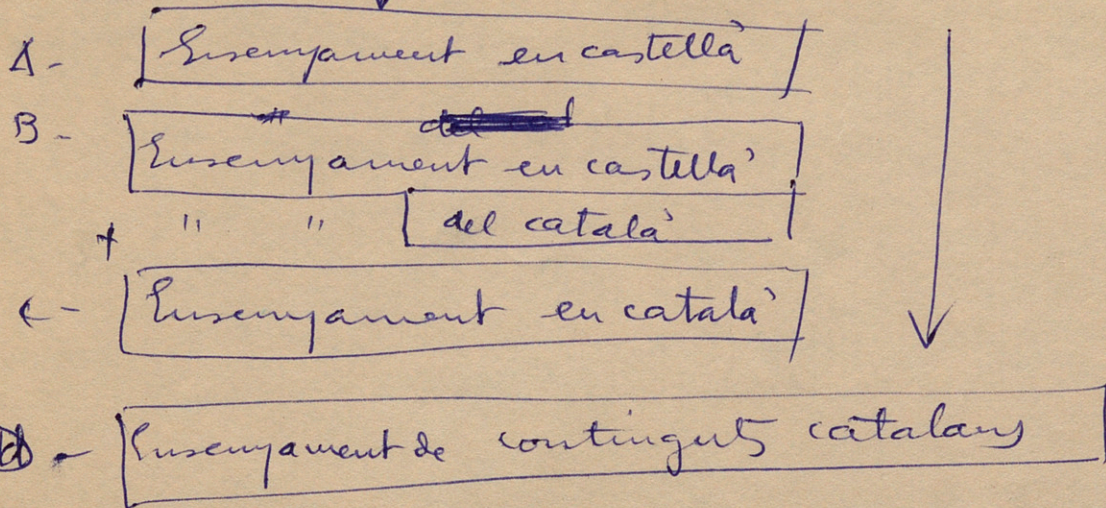 A - Ensenyament en castellà
B -
Ensenyament en castellà
+ " " del català
C - Ensenyament en català
D - Ensenyament de continguts catalans